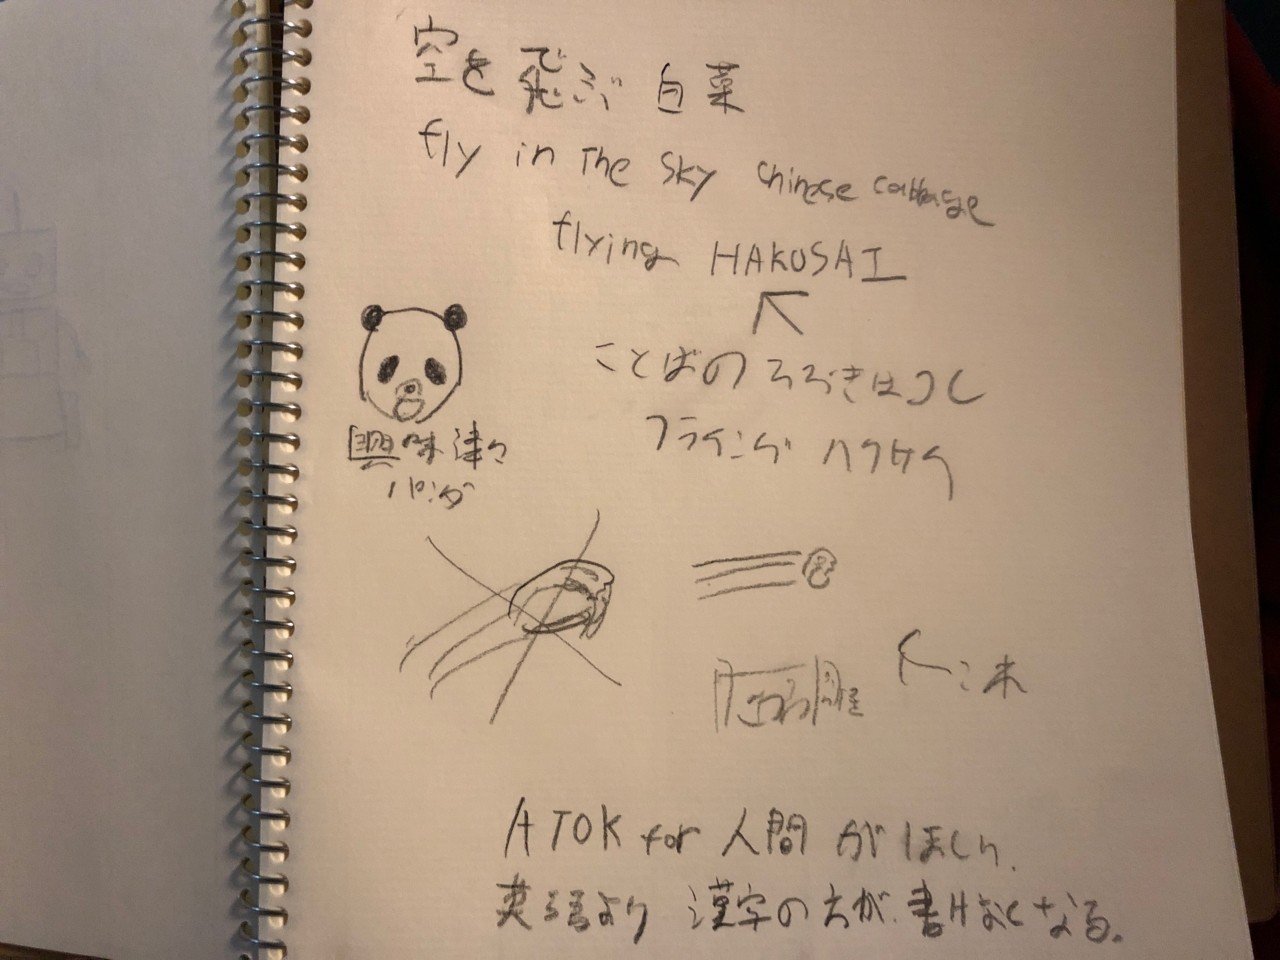 空を飛ぶ白菜
fly in The sky chinese cabbage
flying HAKUSAI
ことばの
フライング ハクサイ
興味津々
パンダ
ATOK for 人間 がほしい.
英語より 漢字の方が書けなくなる.